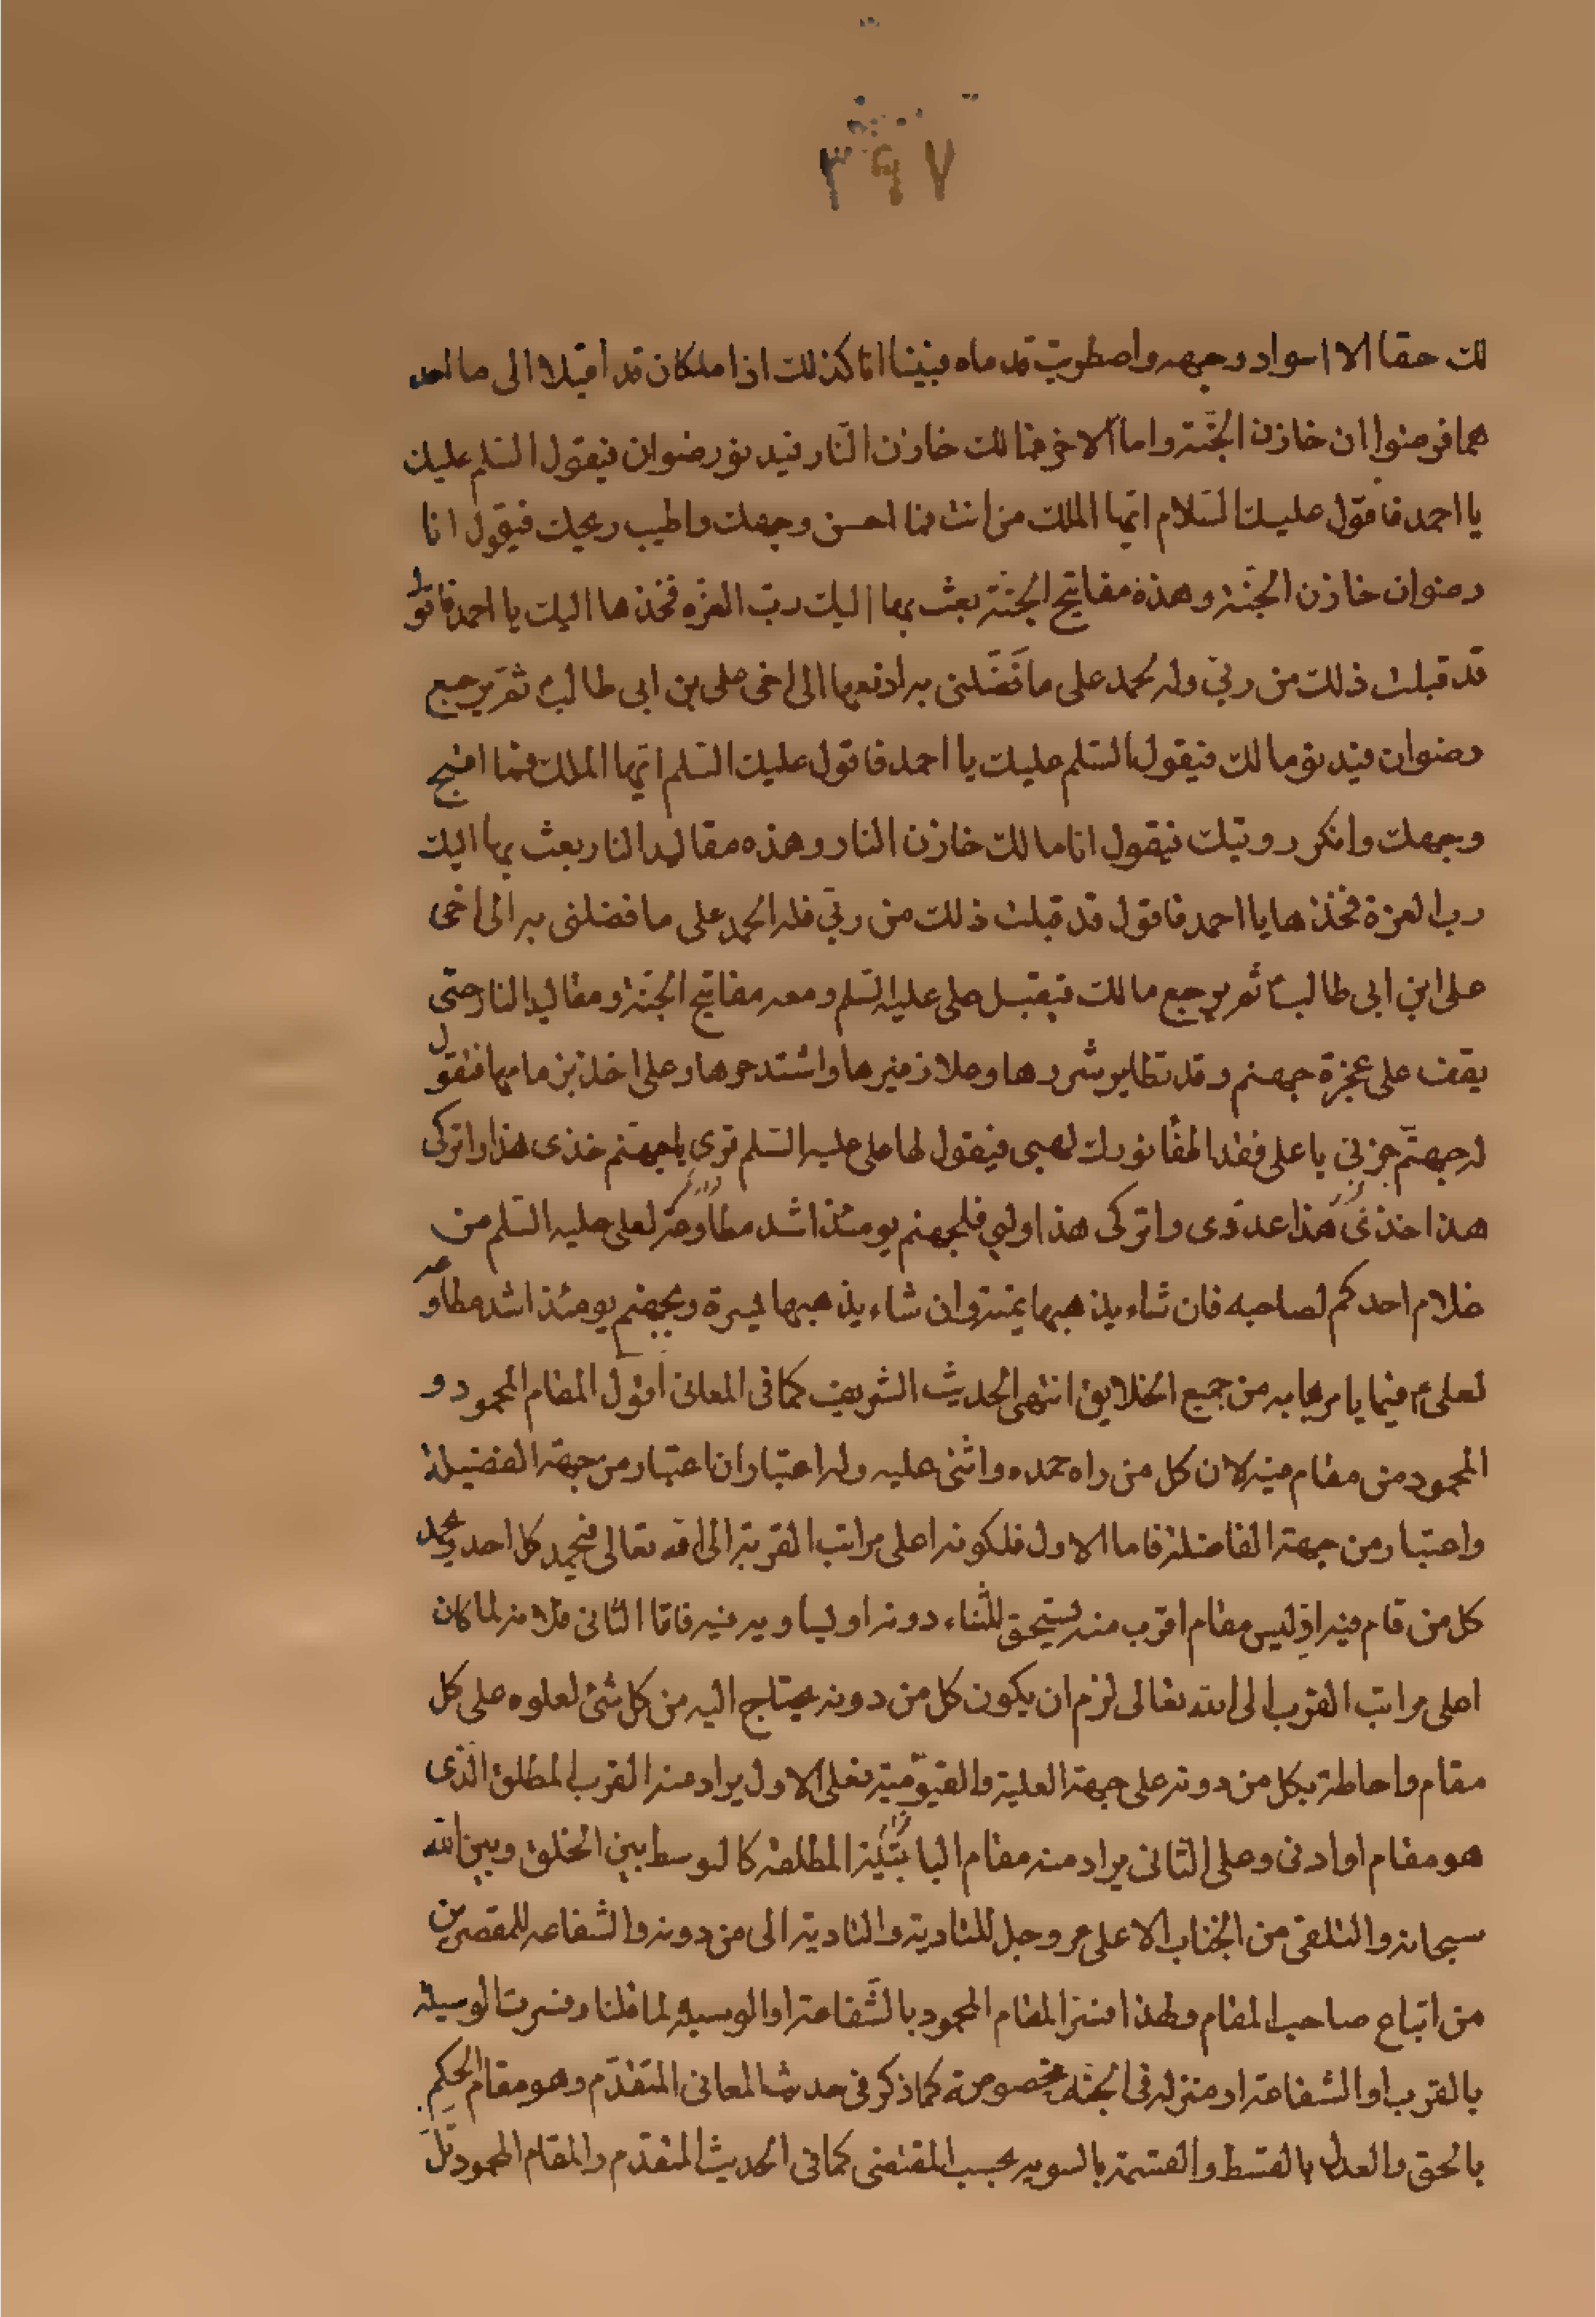 ٣٩٧
لك حقا الا اسواد وجهه واضطربت قدماه فبينا انا كذلك اذا ملكان قد اقبلا الى ما احد
هما فرضوا ان خازن الجنة واما الاخر فمالك خازن النار فيدنو رضوان فيقول السلم عليك
يا احمد فاقول عليك السلام ايها الملك من انت فما احسن وجهك واطيب ريحك فيقول انا
رضوان خازن الجنة وهذه مفاتيح الجنة بعث بها اليك رب العزه فخذها اليك يا احمد فاقول
قد قبلت ذلك من ربي وله محمد على ما فَضَّلنى به ادفعها الى اخى على بن ابى طالب ثم يرجع
رضوان فيدنو مالك فيقول السلم عليك يا احمد فاقول عليك السلم ايها الملك فما اقبح
وجهك وانكر رويتك فيقول انا مالك خازن النار وهذه مقاليد النار بعث بها اليك
رب العزة فخذها يا احمد فاقول قد قبلت ذلك من ربي فله الحمد على ما فضلنى به الى اخى
على ابن ابى طالب ثم يرجع مالك فيقبل على عليه السلم ومعه مفاتيح الجنة ومقاليد النار حتى
يقف على عجزة جهنم وقد تطاير شررها وعلا زفيرها واشتد حرها وعلى اخذ بزمامها فتقول
له جهنم جزنى يا على فقد اطفا نورك لهبى فيقول لها على عليه السلم قرى يا جهنم خذى هذا واتركى
هذا خذى هذا عدوى واتركى هذا وليي فلجهنم يومئذ اشد مطاوعة لعلى عليه السلم من
غلام احدكم لصاحبه فان شاء يذهبها يمنة وان شاء يذهبها يسرة ولجهنم يومئذ اشد مطاوعه
لعلى ع فيما يامرها به من جميع الخلايق انتهى الحديث الشريف كما فى المعانى اقول المقام المحمود و
المحمود من مقام فيه لان كل من راه حمده واثنى عليه وله اعتباران اعتبار من جهة الفضيلة
واعتبار من جهة الفاضلة فاما الاول فلكونه اعلى مراتب القربة الى الله تعالى فيحمد كل احد ويحمد
كل من قام فيه اذ ليس مقام اقرب منه يستحق للثناء دونه او يساويه فيه فاما الثانى فلانه لما كان
اعلى مراتب القرب الى الله تعالى لزم ان يكون كل من دونه يحتاج اليه من كل شئ لعلوه على كل
مقام واحاطة بكل من دونه على جهة العلية والقيومية فعلى الاول يراد منه القرب المطلق الذى
هو مقام او ادنى وعلى الثانى يراد منه مقام البابية المطلقة كالتوسط بين الخلق وبين الله
سبحانه والتلقى من الجناب الاعلى عز وجل للتادية والتادية الى من دونه والشفاعه للمقصرين
من اتباع صاحب المقام ولهذا فسر المقام المحمود بالشفاعة او الوسيلة لما قلنا وفسرت الوسيلة
بالقرب او الشفاعة او منزله فى الجنة مخصوصة كما ذكر فى حديث المعانى المتقدم وهو مقام الحكم
بالحق والعدل بالقسط والقسمة بالسويه بحسب المقتضى كما فى الحديث المتقدم والمقام المحمود